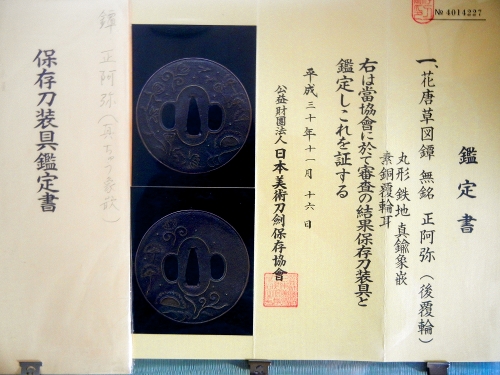 № 4014227
鑑定書
一、花唐草図鐔 無銘 正阿弥（後覆輪）
丸形 鉄地 真鍮象嵌
素銅覆輪耳
右は當協會に於て審査の結果保存刀装具と
鑑定しこれを証する
平成三十年十一月 十六日
公益財團法人 日本美術刀劍保存協會
鐔 正阿弥
保存刀装具鑑定書